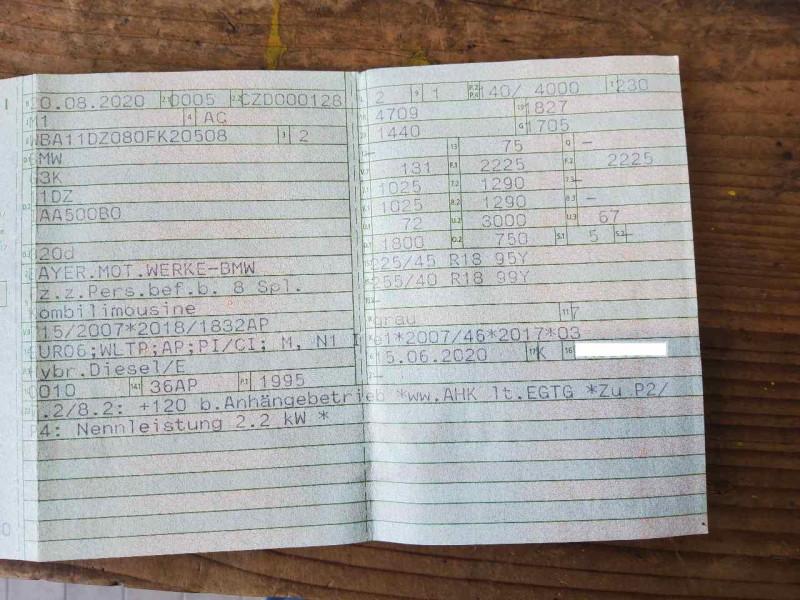 0.08.2020 2.1 0005 2.2 CZD000128
1 4 AC
BA11DZ080FK20508 3 2
MW
3K
1DZ
AA500B0
20d
AYER.MOT.WERKE-BMW
z.z.Pers.bef.b. 8 Spl.
ombilimousine
15/2007*2018/1832AP
UR06;WLTP;AP;PI/CI; M, N1 I
vbr.Diesel/E
0010 14.1 36AP P.1 1995
.2/8.2: +120 b.Anhängebetrieb *ww.AHK lt.EGTG *Zu P2/
4: Nennleistung 2.2 kW *
2 9 1 P.2 P.4 140/ 4000 T 230
4709 1827
1440 G 1705
– 13 75 Q –
131 F.1 2225 F.2 2225
1025 7.2 1290 7.3 –
1025 8.2 1290 8.3 –
72 U.2 3000 U.3 67
1800 O.2 750 S.1 5 S.2 –
225/45 R18 95Y
255/40 R18 99Y
–
grau 11 7
e1*2007/46*2017*03
15.06.2020 17 K 16
–